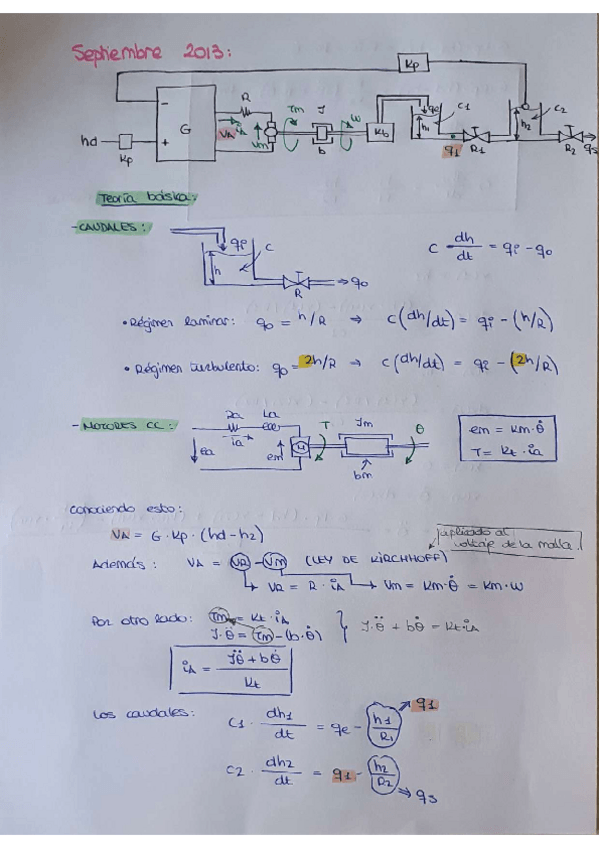 Septiembre 2013:
Kp
hd
Kp
-
+
G
R
VA
iA
Vm
Tm
J
b
W
Kb
qe
h1
C1
q1
R1
h2
C2
R2
qs
Teoría básica:
-CAUDALES:
qi
h
C
R
qo
C · dh/dt = qi - qo
• Régimen laminar: qo = h/R ⇒ C(dh/dt) = qi - (h/R)
• Régimen turbulento: qo = 2h/R → C(dh/dt) = qi - (2h/R)
- MOTORES CC:
Ra
La
ia
ea
em
M
T
Jm
θ
bm
em = Km·θ̇
T = Kt · ia
Conociendo esto:
VA = G · Kp · (hd - h2)
aplicado al
voltaje de la malla.
Además: VA = VR - Vm (LEY DE KIRCHHOFF)
VR = R · iA
Vm = Km·θ̇ = Km·W
Por otro lado: Tm = Kt · iA
J·θ̈ = Tm - (b·θ̇) } J·θ̈ + bθ̇ = Kt·iA
iA = Jθ̈ + bθ̇ / Kt
Los caudales: C1 · dh1/dt = qe - h1/R1 → q1
C2 · dh2/dt = q1 - h2/R2 ⇒ qs